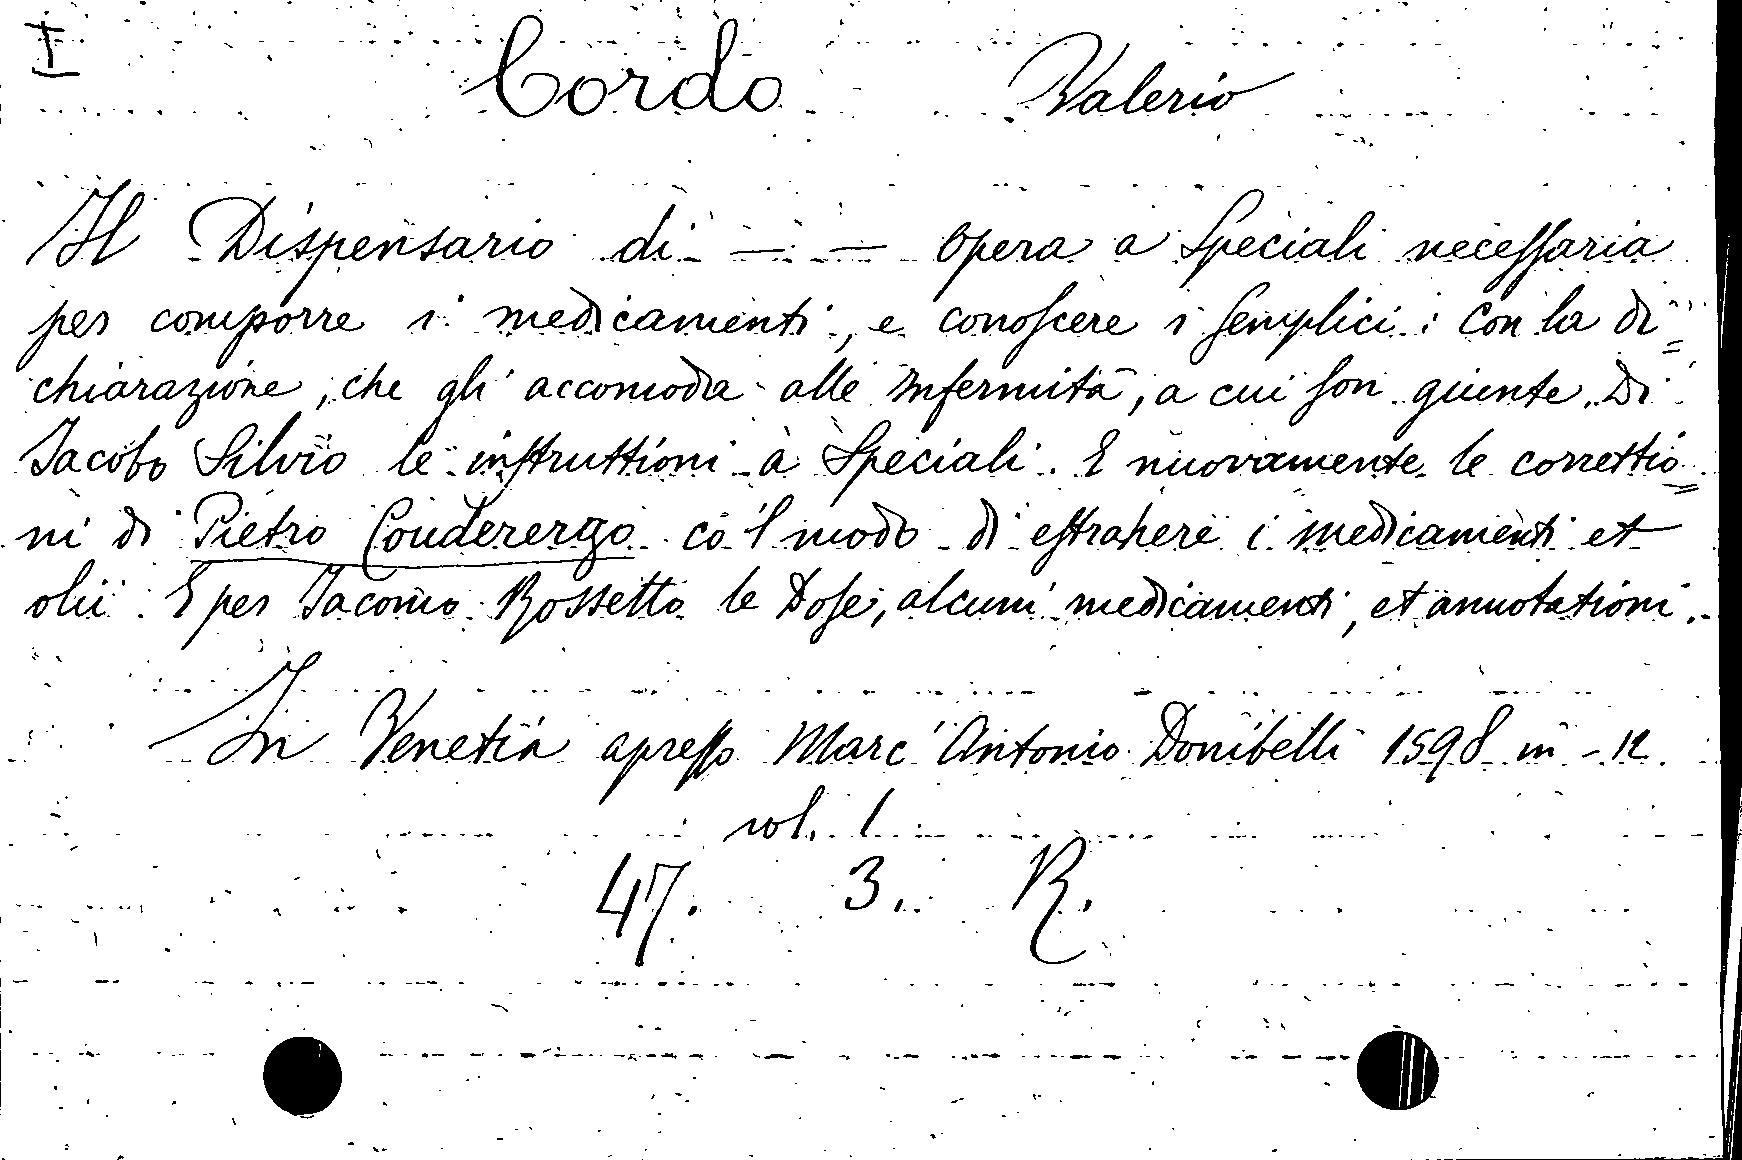 I
Cordo Valerio
Il Dispensario di — — opera a Speciali necessaria
per comporre i medicamenti, e conoscere i semplici: con la di=
chiarazione, che gli accomoda alle Infermità, a cui son giunte di
Jacobo Silvio le instruttioni à Speciali. E nuovamente le correttio=
ni di Pietro Couderergo cò 'l modo di estrahere i medicamenti et
olii. E per Jacomo Rossetto le Dose, alcuni medicamenti, et annotationi.
In Venetia apresso Marc' Antonio Donibelli 1598 in - 12.
vol. 1
47. 3. R.